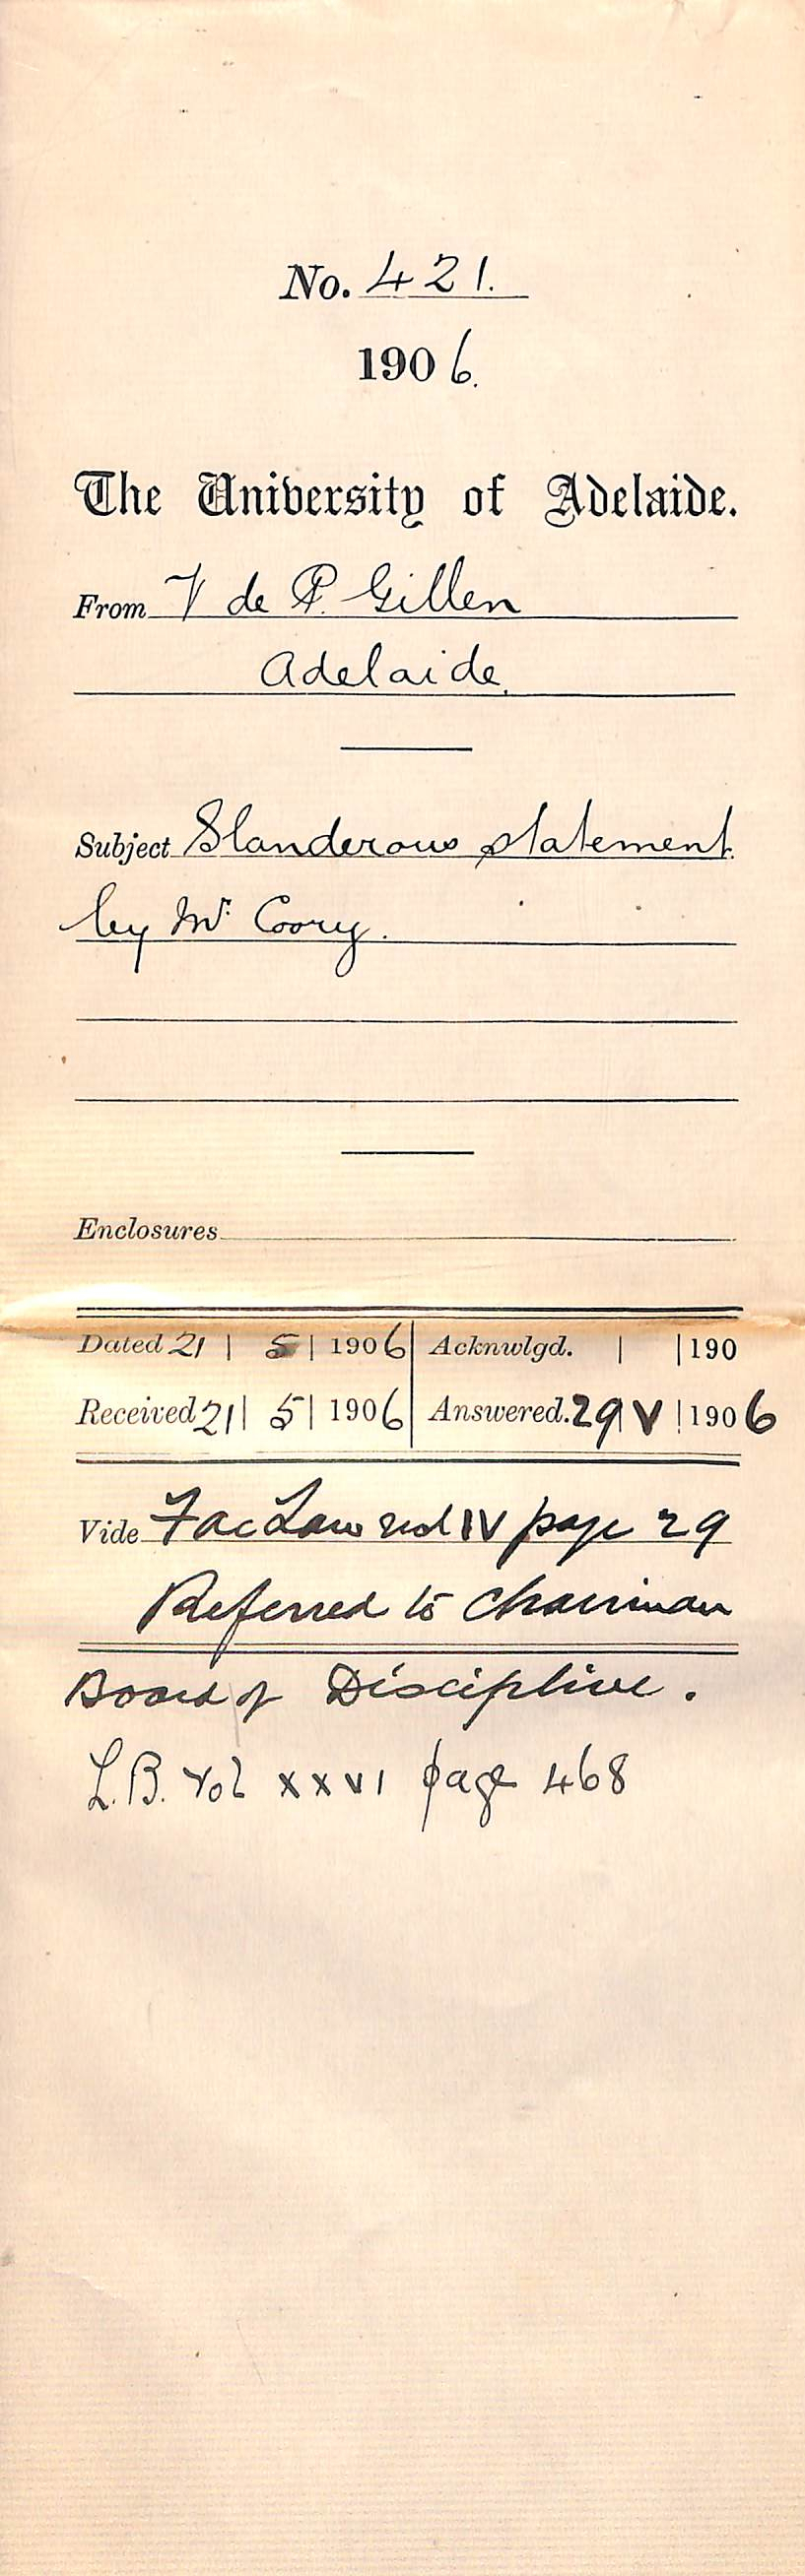 No. 421.
1906.
The University of Adelaide.
From V de P. Gillen
Adelaide.
Subject Slanderous statement
by Mr. Coory.
Enclosures
Dated 21 | 5 | 1906 Acknwlgd. | | 190
Received 21 | 5 | 1906 Answered. 29 | V | 1906
Vide Fac Law IV page 29
Referred to Chairman
Board of Discipline.
L.B. Vol XXVI page 468